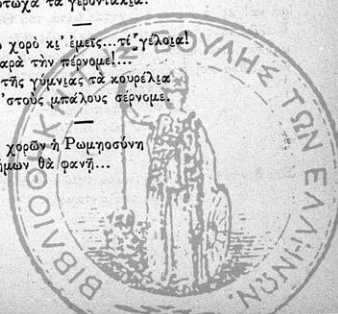 τωχὰ τὰ γεροντάκια.
χορὸ κι' ἐμεῖς...τί γέλοια!
αρὰ τὴν πέρνομε!...
τῆς γύμνιας τὰ κουρέλια
'στοὺς μπάλους σέρνομε.
χορῶν ἡ Ρωμηοσύνη
ήμων θὰ φανῇ...
ΒΙΒΛΙΟΘΗΚΗ ΤΗΣ ΒΟΥΛΗΣ ΤΩΝ ΕΛΛΗΝΩΝ